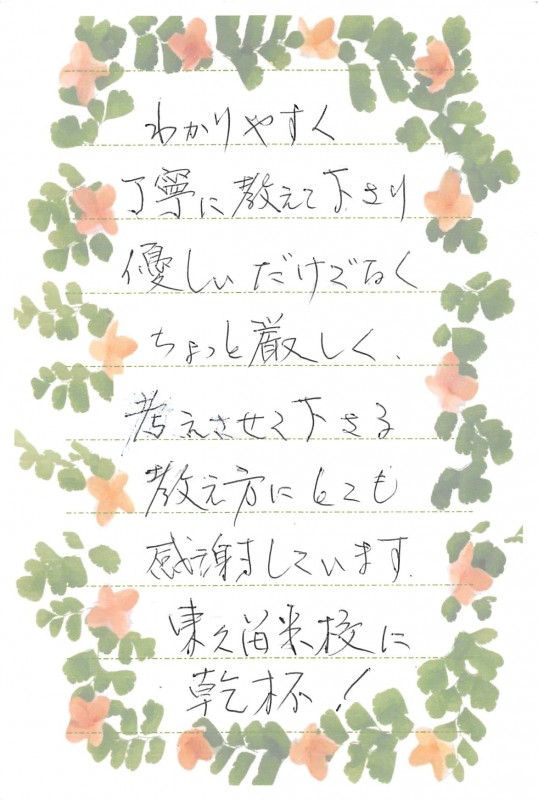 わかりやすく
丁寧に教えて下さり
優しいだけでなく
ちょっと厳しく、
考えさせて下さる
教え方にとても
感謝しています.
東久留米校に
乾杯!